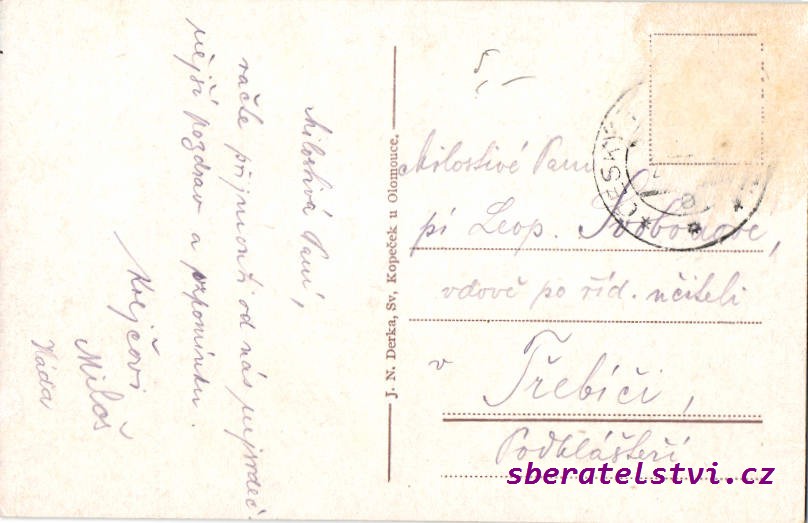 Milostivá Paní,
račte přijmouti od nás nejsrdeč-
nější pozdrav a vzpomínku.
Krejčovi
Miloš
Náďa
J. N. Derka, Sv. Kopeček u Olomouce.
Milostivé Paní
pí Leop. Svobodové,
vdově po říd. učiteli
v Třebíči,
Podklášteří
sberatelstvi.cz